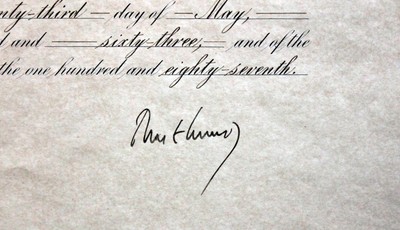 nty-third — day of — May, —
d and — sixty-three, — and of the
the one hundred and eighty-seventh.